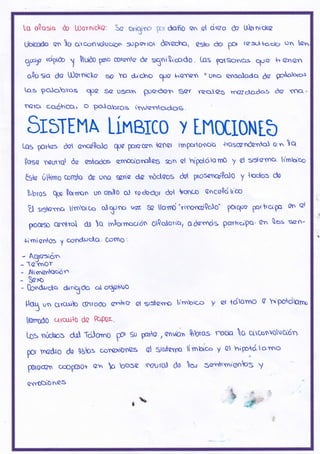 La afasia de Wernicke: Se origina por daño en el área de Wernicke
Ubicada en la circunvolucion superior derecha, esto da por resultado un len
guaje rápido y fluido pero carente de significado. Las personas que tienen
afasia de Wernicke se ha dicho que tienen "una ensalada de palabras"
Las palabras que se usan pueden ser reales mezcladas de ma-
nera caótica, o palabras inventadas.
SISTEMA LÍMBICO Y EMOCIONES
Las partes del encéfalo que parecen tener importancia trascendental en la
base neural de estados emocionales son el hipotálamo y el sistema límbico
Este último consta de una serie de núcleos del prosencéfalo y tractos de
fibras que forman un anillo al rededor del tronco encefálico
El sistema límbico alguna vez se llamó "rinencéfalo" porque participa en el
proceso central de la información olfatoria, además participa en los sen-
timientos y conducta como:
- Agresión
- Temor
- Alimentación
- Sexo
- Conducta dirigida al objetivo
Hay un circuito cerrado entre el sistema límbico y el tálamo e hipotálamo
llamado circuito de Papez.
Los núcleos del Tálamo por su parte, envían fibras hacia la circonvolución
por medio de estas conexiones el sistema límbico y el hipotálamo
parecen cooperar en la base neural de los sentimientos y
emociones